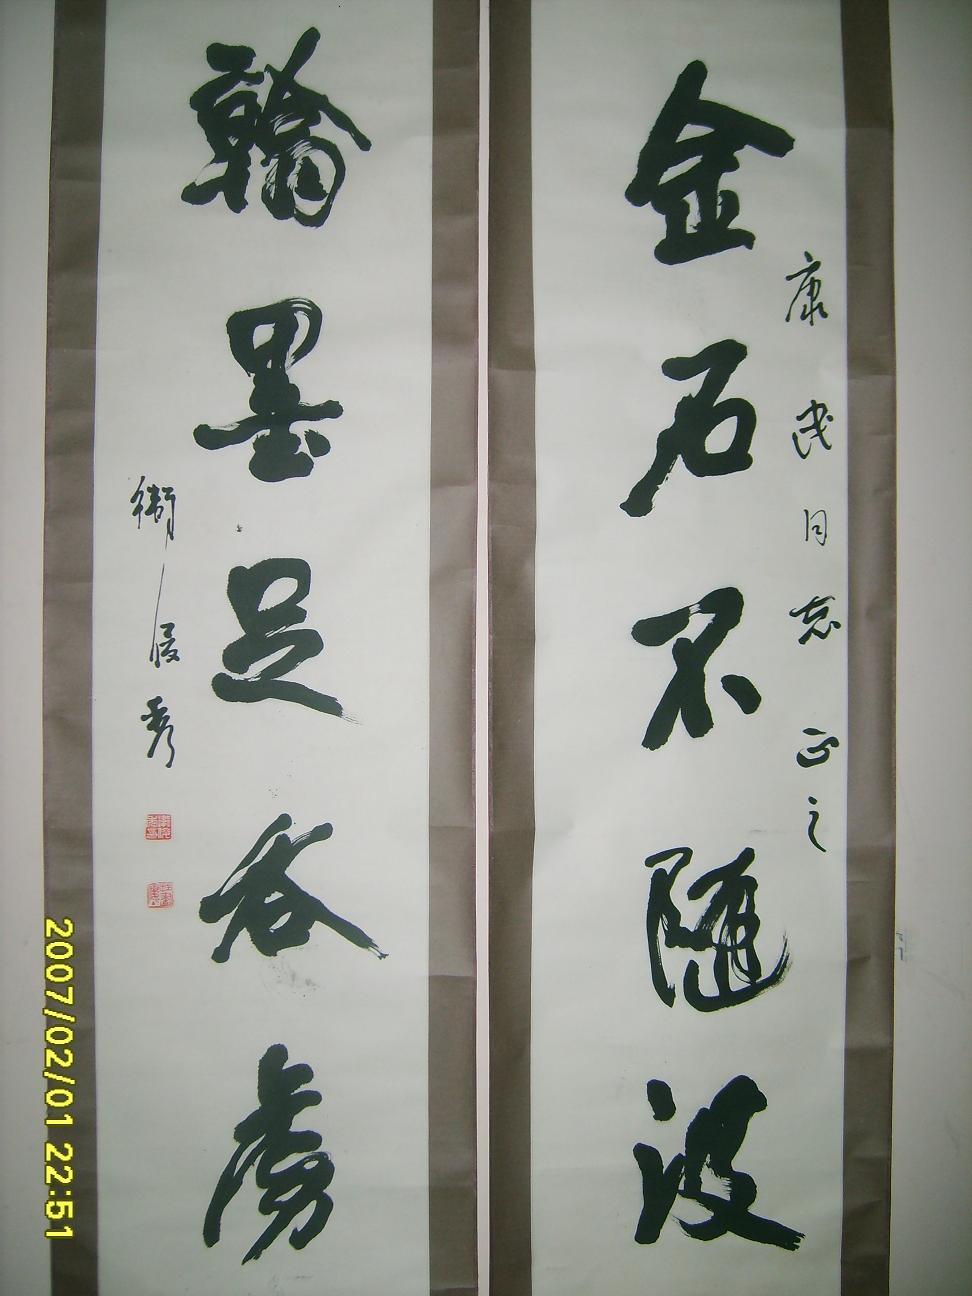 康民同志正之
金石不随波
翰墨足吞虏
衛俊秀
2007/02/01 22:51